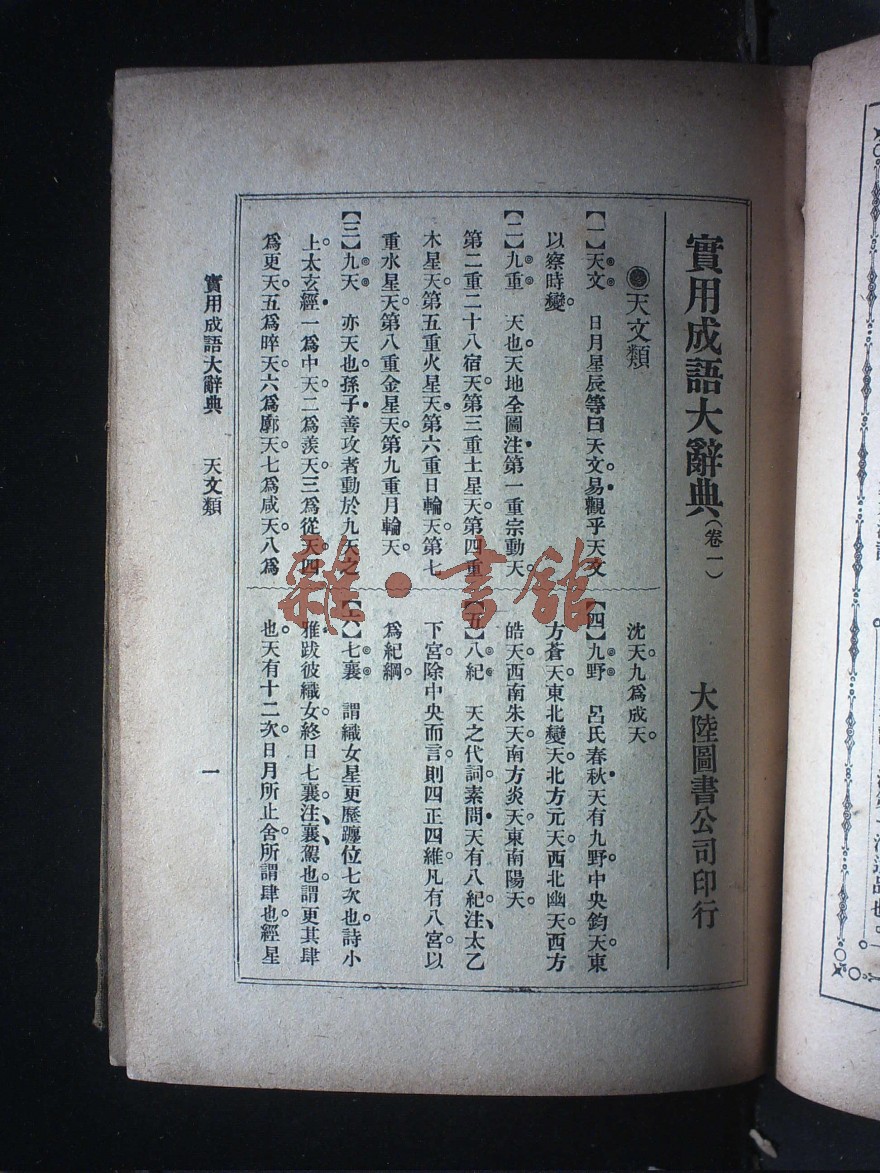 實用成語大辭典（卷一）
大陸圖書公司印行
天文類
【一】天文　日月星辰等曰天文。易觀乎天文
以察時變。
【二】九重　天也。天地全圖注第一重宗動天。
第二重二十八宿天。第三重土星天。第四重
木星天。第五重火星天。第六重日輪天。第七
重水星天。第八重金星天。第九重月輪天。
【三】九天　亦天也。孫子善攻者動於九天之
上。太玄經一爲中天。二爲羨天。三爲從天。四
爲更天。五爲睟天。六爲廓天。七爲咸天。八爲
沈天。九爲成天。
【四】九野　呂氏春秋天有九野。中央鈞天。東
方蒼天。東北變天。北方元天。西北幽天。西方
皓天。西南朱天。南方炎天。東南陽天。
【五】八紀　天之代詞。素問天有八紀。注、太乙
下宮除中央而言。則四正四維。凡有八宮。以
爲紀綱。
【六】七襄　謂織女星更歷躔位七次也。詩小
雅跂彼織女。終日七襄。注、襄、駕也。謂更其肆
也。天有十二次。日月所止舍。所謂肆也。經星
實用成語大辭典　天文類
一
雜·書館